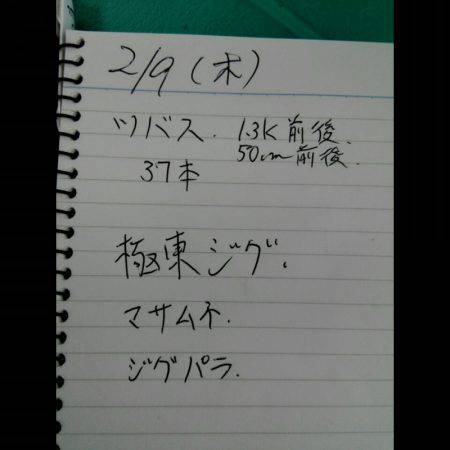 2/9(木)
ツバス. 1.3K前後.
50cm前後.
37本
極東ジグ.
マサムネ.
ジグパラ.